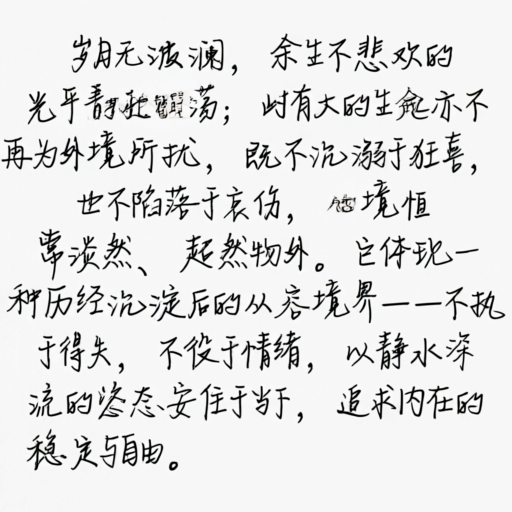 岁月无波澜，余生不悲欢的
光平静 荡；时有大的生命亦不
再为外境所扰，既不沉溺于狂喜，
也不陷落于哀伤，心境恒
常淡然、超然物外。它体现一
种历经沉淀后的从容境界——不执
于得失，不役于情绪，以静水深
流的姿态安住于当下，追求内在的
稳定与自由。